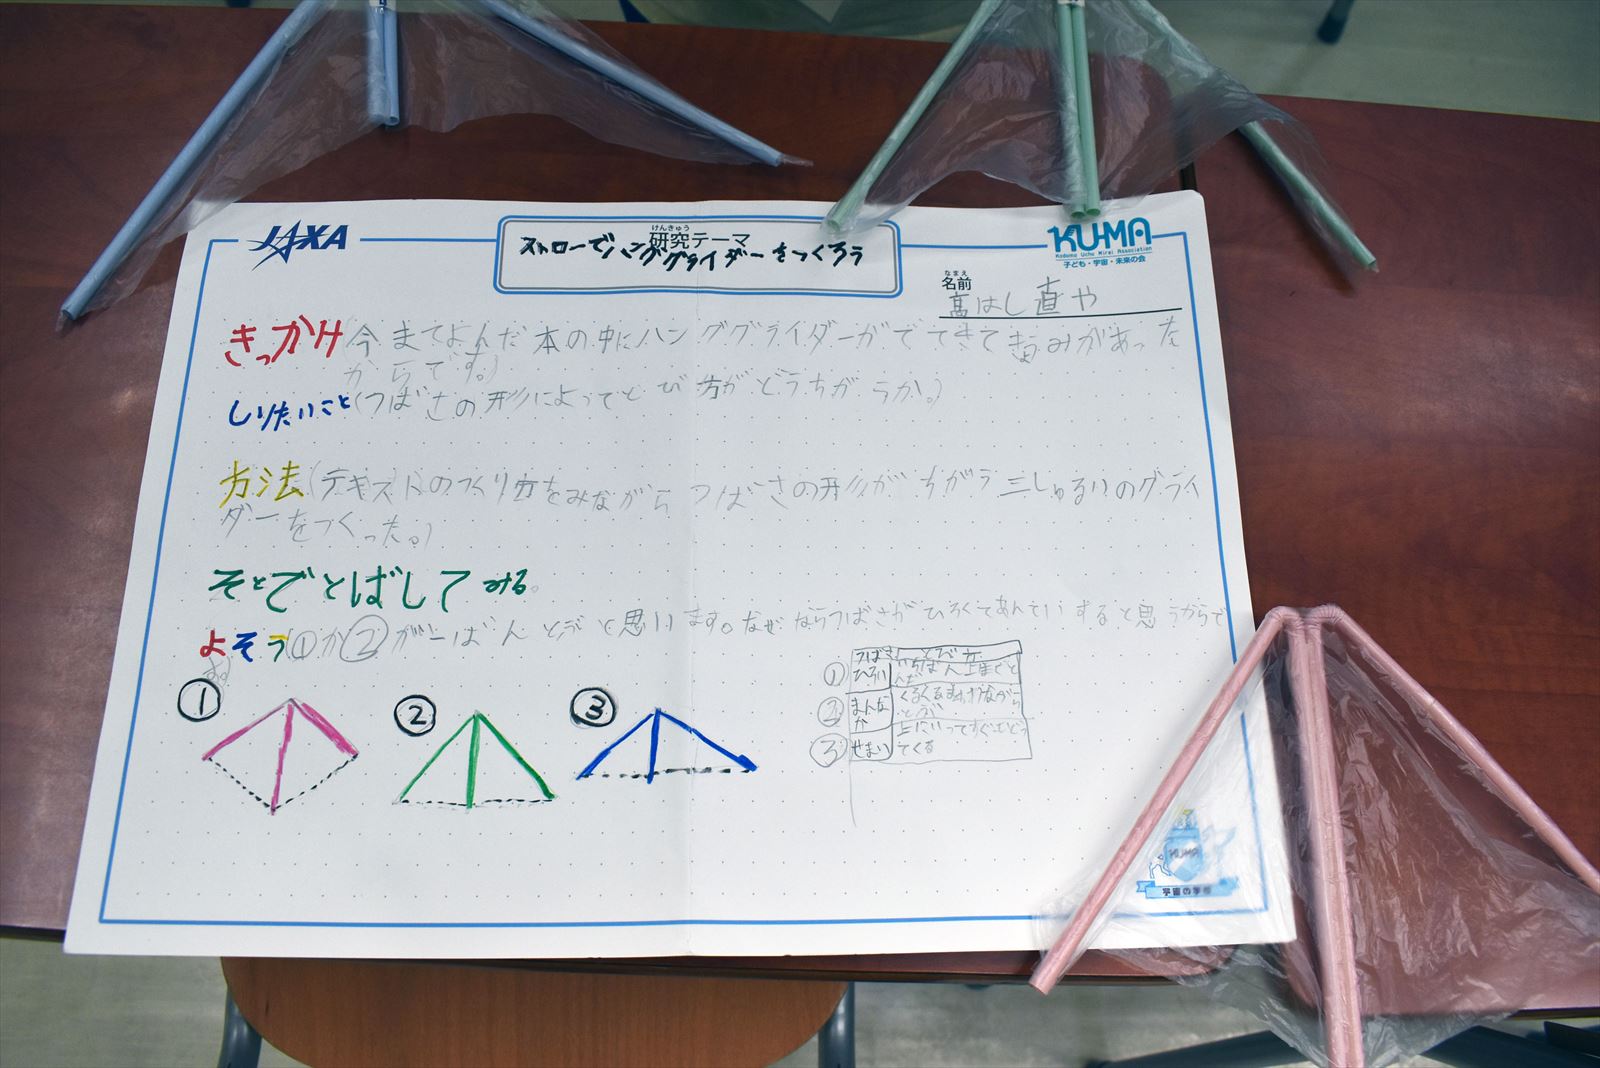 JAXA
けんきゅう
研究テーマ
ストローでハンググライダーをつくろう
KU-MA
Kodomo Uchu Mirai Association
子ども・宇宙・未来の会
なまえ
名前
髙はし直や
きっかけ(今までよんだ本の中にハンググライダーがでてきてきょうみがあった
からです。)
しりたいこと(つばさの形によってとび方がどうちがうか。)
方法(テキストのつくり方をみながらつばさの形がちがう三しゅるいのグライ
ダーをつくった。)
そとでとばしてみる。
よそう(①か②が一ばんとぶと思います。なぜならつばさがひろくてあんていすると思うからで
す。
① ② ③
つばさ とび方
① ひろい いちばん上までとんだ
② まんなか くるくるまわりながらとぶ
③ せまい 上にいってすぐもどってくる
KUMA
宇宙の学校